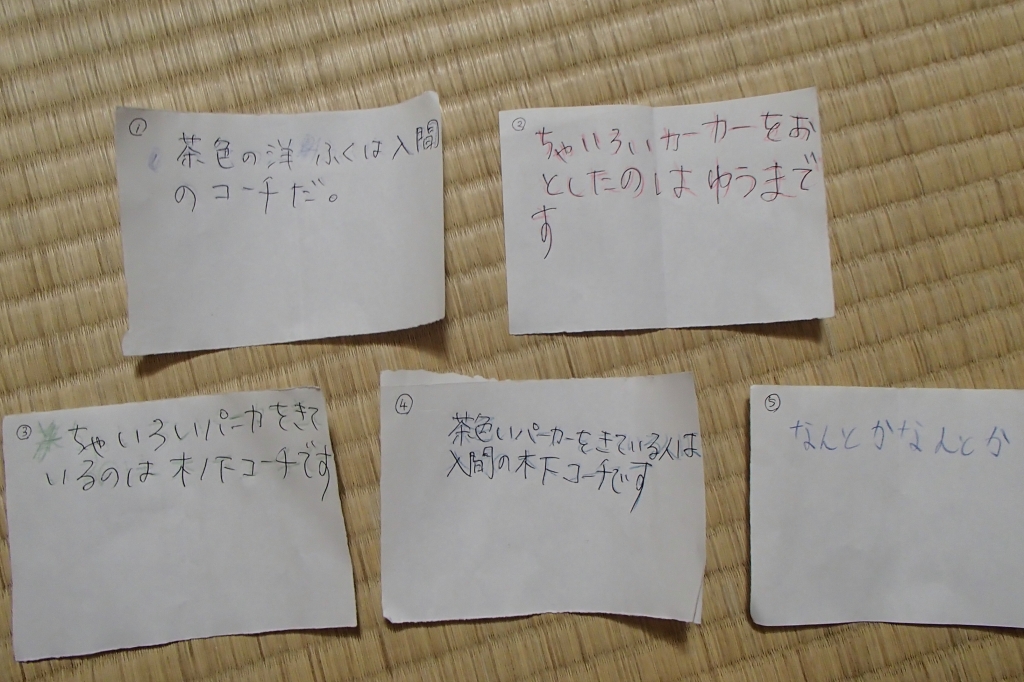 ①
茶色の洋ふくは入間
のコーチだ。
②
ちゃいろいカーカーをお
としたのはゆうまで
す
③
ちゃいろいパーカをきて
いるのは木ノ下コーチです
④
茶色いパーカーをきている人は
入間の木下コーチです
⑤
なんとかなんとか